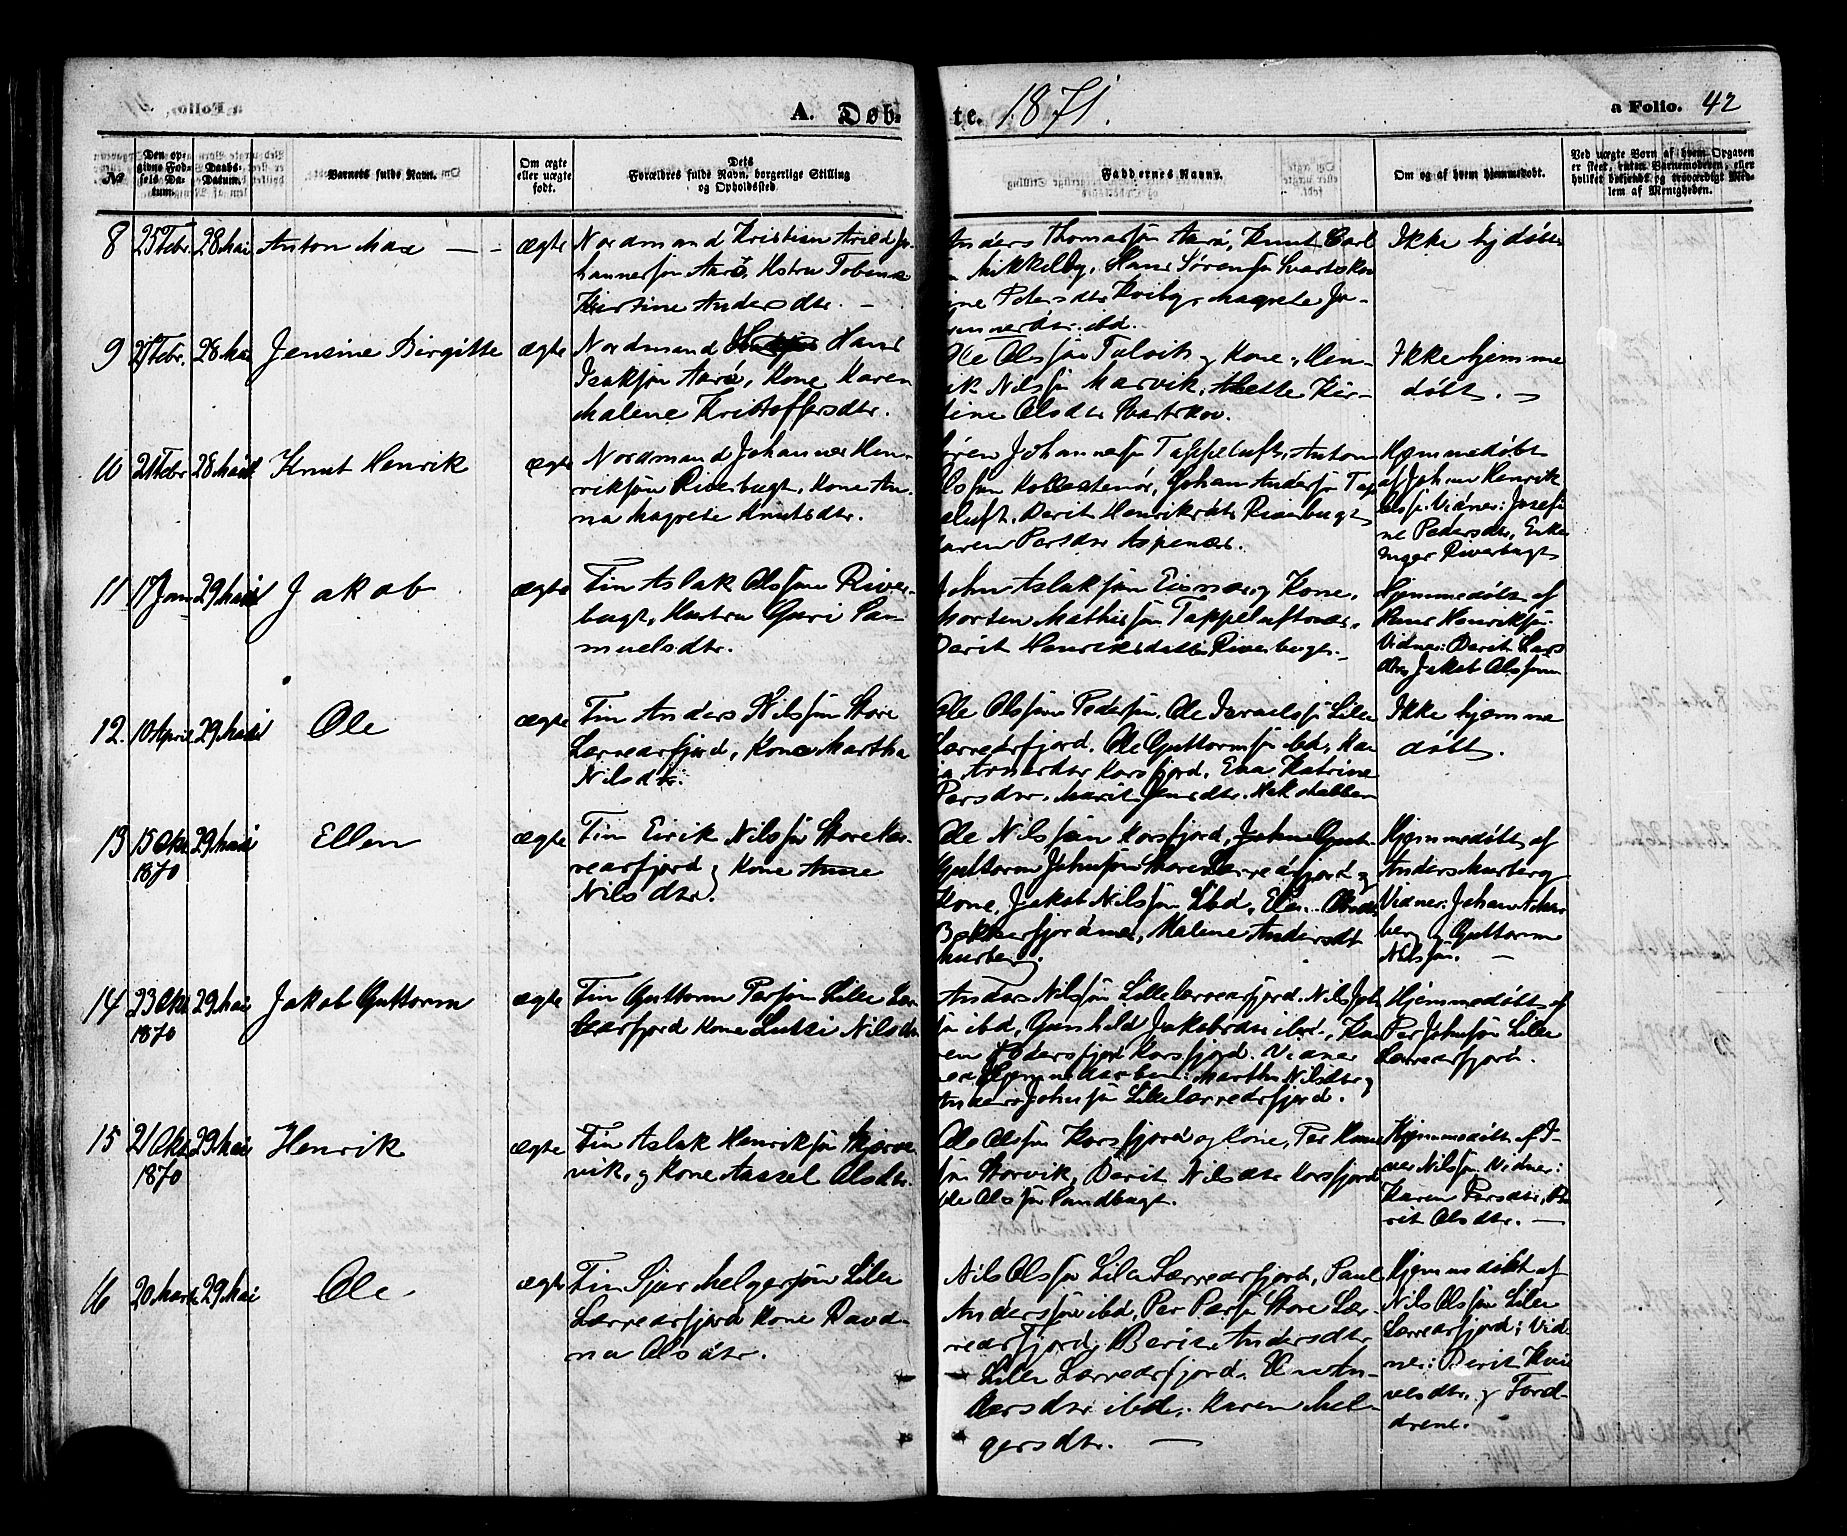 A. Døb-
te. 1871.
a Folio. 42
No
Den op-
givne Fød-
sels Da-
tum.
Daabs-
Datum.
Barnets fulde Navn.
Om ægte
eller uægte
født.
Dets
Forældres fulde Navn, borgerlige Stilling
og Opholdssted.
Faddernes Navne.
Om og af hvem hjemmedøbt.
Ved uægte Børn af hvem Opgaven
er skeet, enten Barnemoderen, eller
hvilket bekjendt og troværdigt Med-
lem af Menigheden.
8 25 Febr 28 Mai Anton Max ægte
Nordmand Kristian Arild Jo-
hannessøn Aarø, Hstru Tobine
Kirstine Andersdtr. -
Anders Thomassøn Aarø, Knut Carl
Mikkelby, Hans Sørensøn Svartskov
Petersdtr Kviby, Magrete Jo-
ibd.
Ikke hjdøbt
9 Febr. 28 Mai Jensine Birgitte ægte
Nordmand Hans
Isaksøn Aarø, Kone Karen
Malene Kristoffersdtr.
Ole Olsøn Talvik og Kone, Hen-
rik Nilsøn Marvik, Mette Kir-
stine Olsdtr Svartskov.
Ikke hjemme
døbt. -
10 21 Febr 28 Mai Knut Henrik ægte
Nordmand Johannes Hen-
riksøn Riverbugt, Kone An-
na Magrete Knutsdtr.
Søren Johannessøn Tappeluft, Anton
Olssøn Johan Andersøn Tap-
peluft, Berit Henriksdtr Riverbugt
Karen Persdtr Aspenæs.
Hjemmedøbt
af Johan Henrik
Olsøn. Vidner: Josefi-
ne Pedersdtr, Enke
Inger Riverbugt
11 17 Jan 29 Mai Jakob ægte
Fin Aslak Olssøn River-
bugt, Hustru Guri Sa-
muelsdtr.
John Aslaksøn og Kone,
Morten Mathissøn Tappeluftnes,
Berit Henriksdatter Riverbugt. -
Hjemmedøbt af
Hans Henriksøn.
Vidner: Berit Lars
dtr, Jakob Olssøn
12. 10 April 29 Mai Ole ægte
Fin Anders Nilsøn Store
Lærredsfjord, Kone Martha
Nilsdtr.
Ole Olsøn Pedersøn, Ole Israelsøn Lille
Lærredsfjord, Ole Guttormsøn ibd, Ma-
Korsfjord, Eva Katrine
Persdtr, Marit Jensdtr.
Ikke hjemme
døbt.
13 15 Okt 29 Mai Ellen ægte
1870
Fin Eirik Nilsøn Store Lær-
redsfjord og Kone Anne
Nilsdtr.
Ole Nilsøn Korsfjord, John Gut-
Guttorm Johnsøn Store Lærredsfjord og
Kone, Jakob Nilsøn ibd, Elen
Malene Andersdtr
Murberg.
Hjemmedøbt af
Anders Murberg
Vidner: Johan Mur-
berg og Guttorm
Nilsøn. -
14 23 Okt 29 Mai Jakob Guttorm ægte
1870
Fin Guttorm Persøn Lille Lær-
redsfjord Kone Sussi Nilsdtr
Anders Nilsøn Lille Lærredsfjord, Nils Joh-
søn ibd, Gunhild Jakobsdtr ibd, Ka-
ren Pedersfjord Korsfjord. Vidner
ved Hjemmedaaben: Martha Nilsdtr og
Anders Johnsøn Lille Lærredsfjord.
Hjemmedøbt af
Per Johnsøn Lille
Lærredsfjord.
15 21 Okt 29 Mai Henrik ægte
1870
Fin Aslak Henriksøn Skjærve-
vik, og Kone Aassel Olsdtr.
Ole Olsøn Korsfjord og Kone, Per Hans
søn Storvik, Berit Nilsdtr Korsfjord
Ole Olsøn Sandbugt.
Hjemmedøbt af I-
ver Nilsøn. Vidner:
Karen Persdtr, Be-
rit Olsdtr. -
16 20 Marts 29 Mai Ole ægte
Fin Sjur Melgersøn Lille
Lærredsfjord Kone Ravd-
na Olsdtr.
Nils Olsøn Lille Lærredsfjord, Paul
Anderssøn ibd, Per Persøn Store Lær-
redsfjord, Berit Andersdtr
Lille Lærredsfjord, An-
dersdtr ibd, Karen Mel-
gersdtr. -
Hjemmedøbt af
Nils Olsøn Lille
Lærredsfjord; Vid-
ner: Berit
og Foræl-
drene.